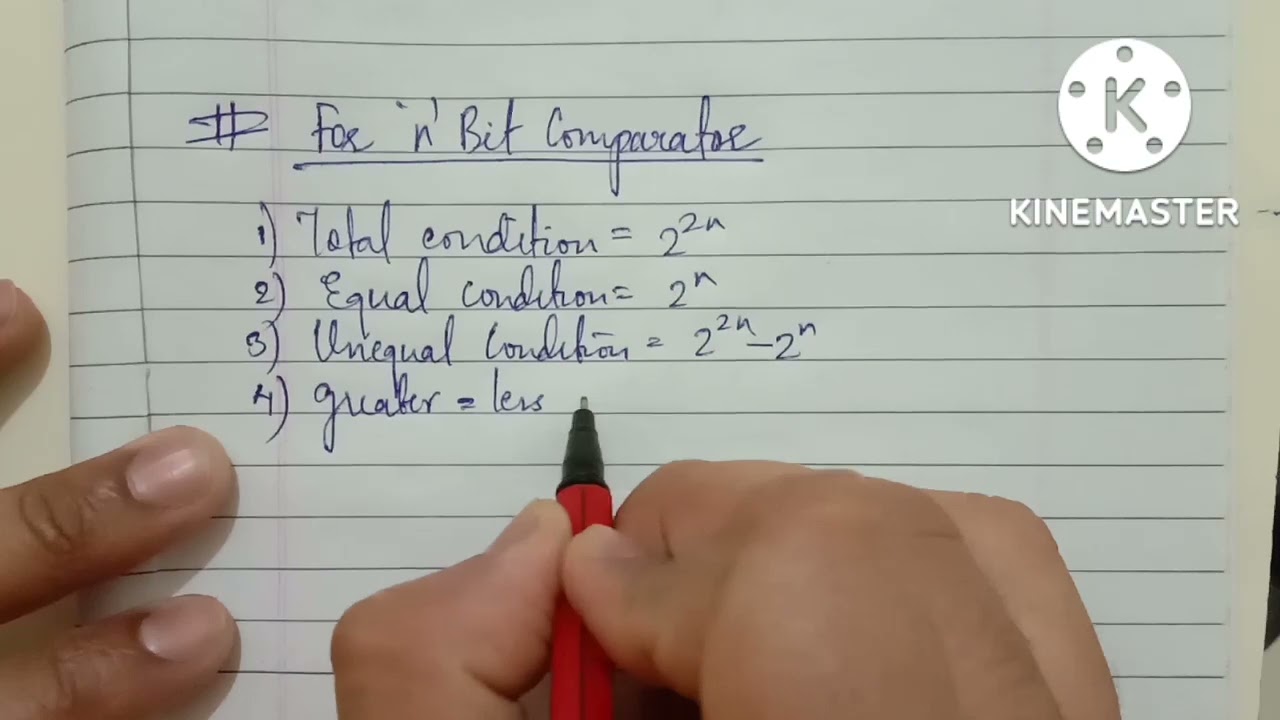 # For 'n' Bit Comparator
1) Total condition = 2²ⁿ
2) Equal condition = 2ⁿ
3) Unequal Condition = 2²ⁿ - 2ⁿ
4) greater = less
K
KINEMASTER